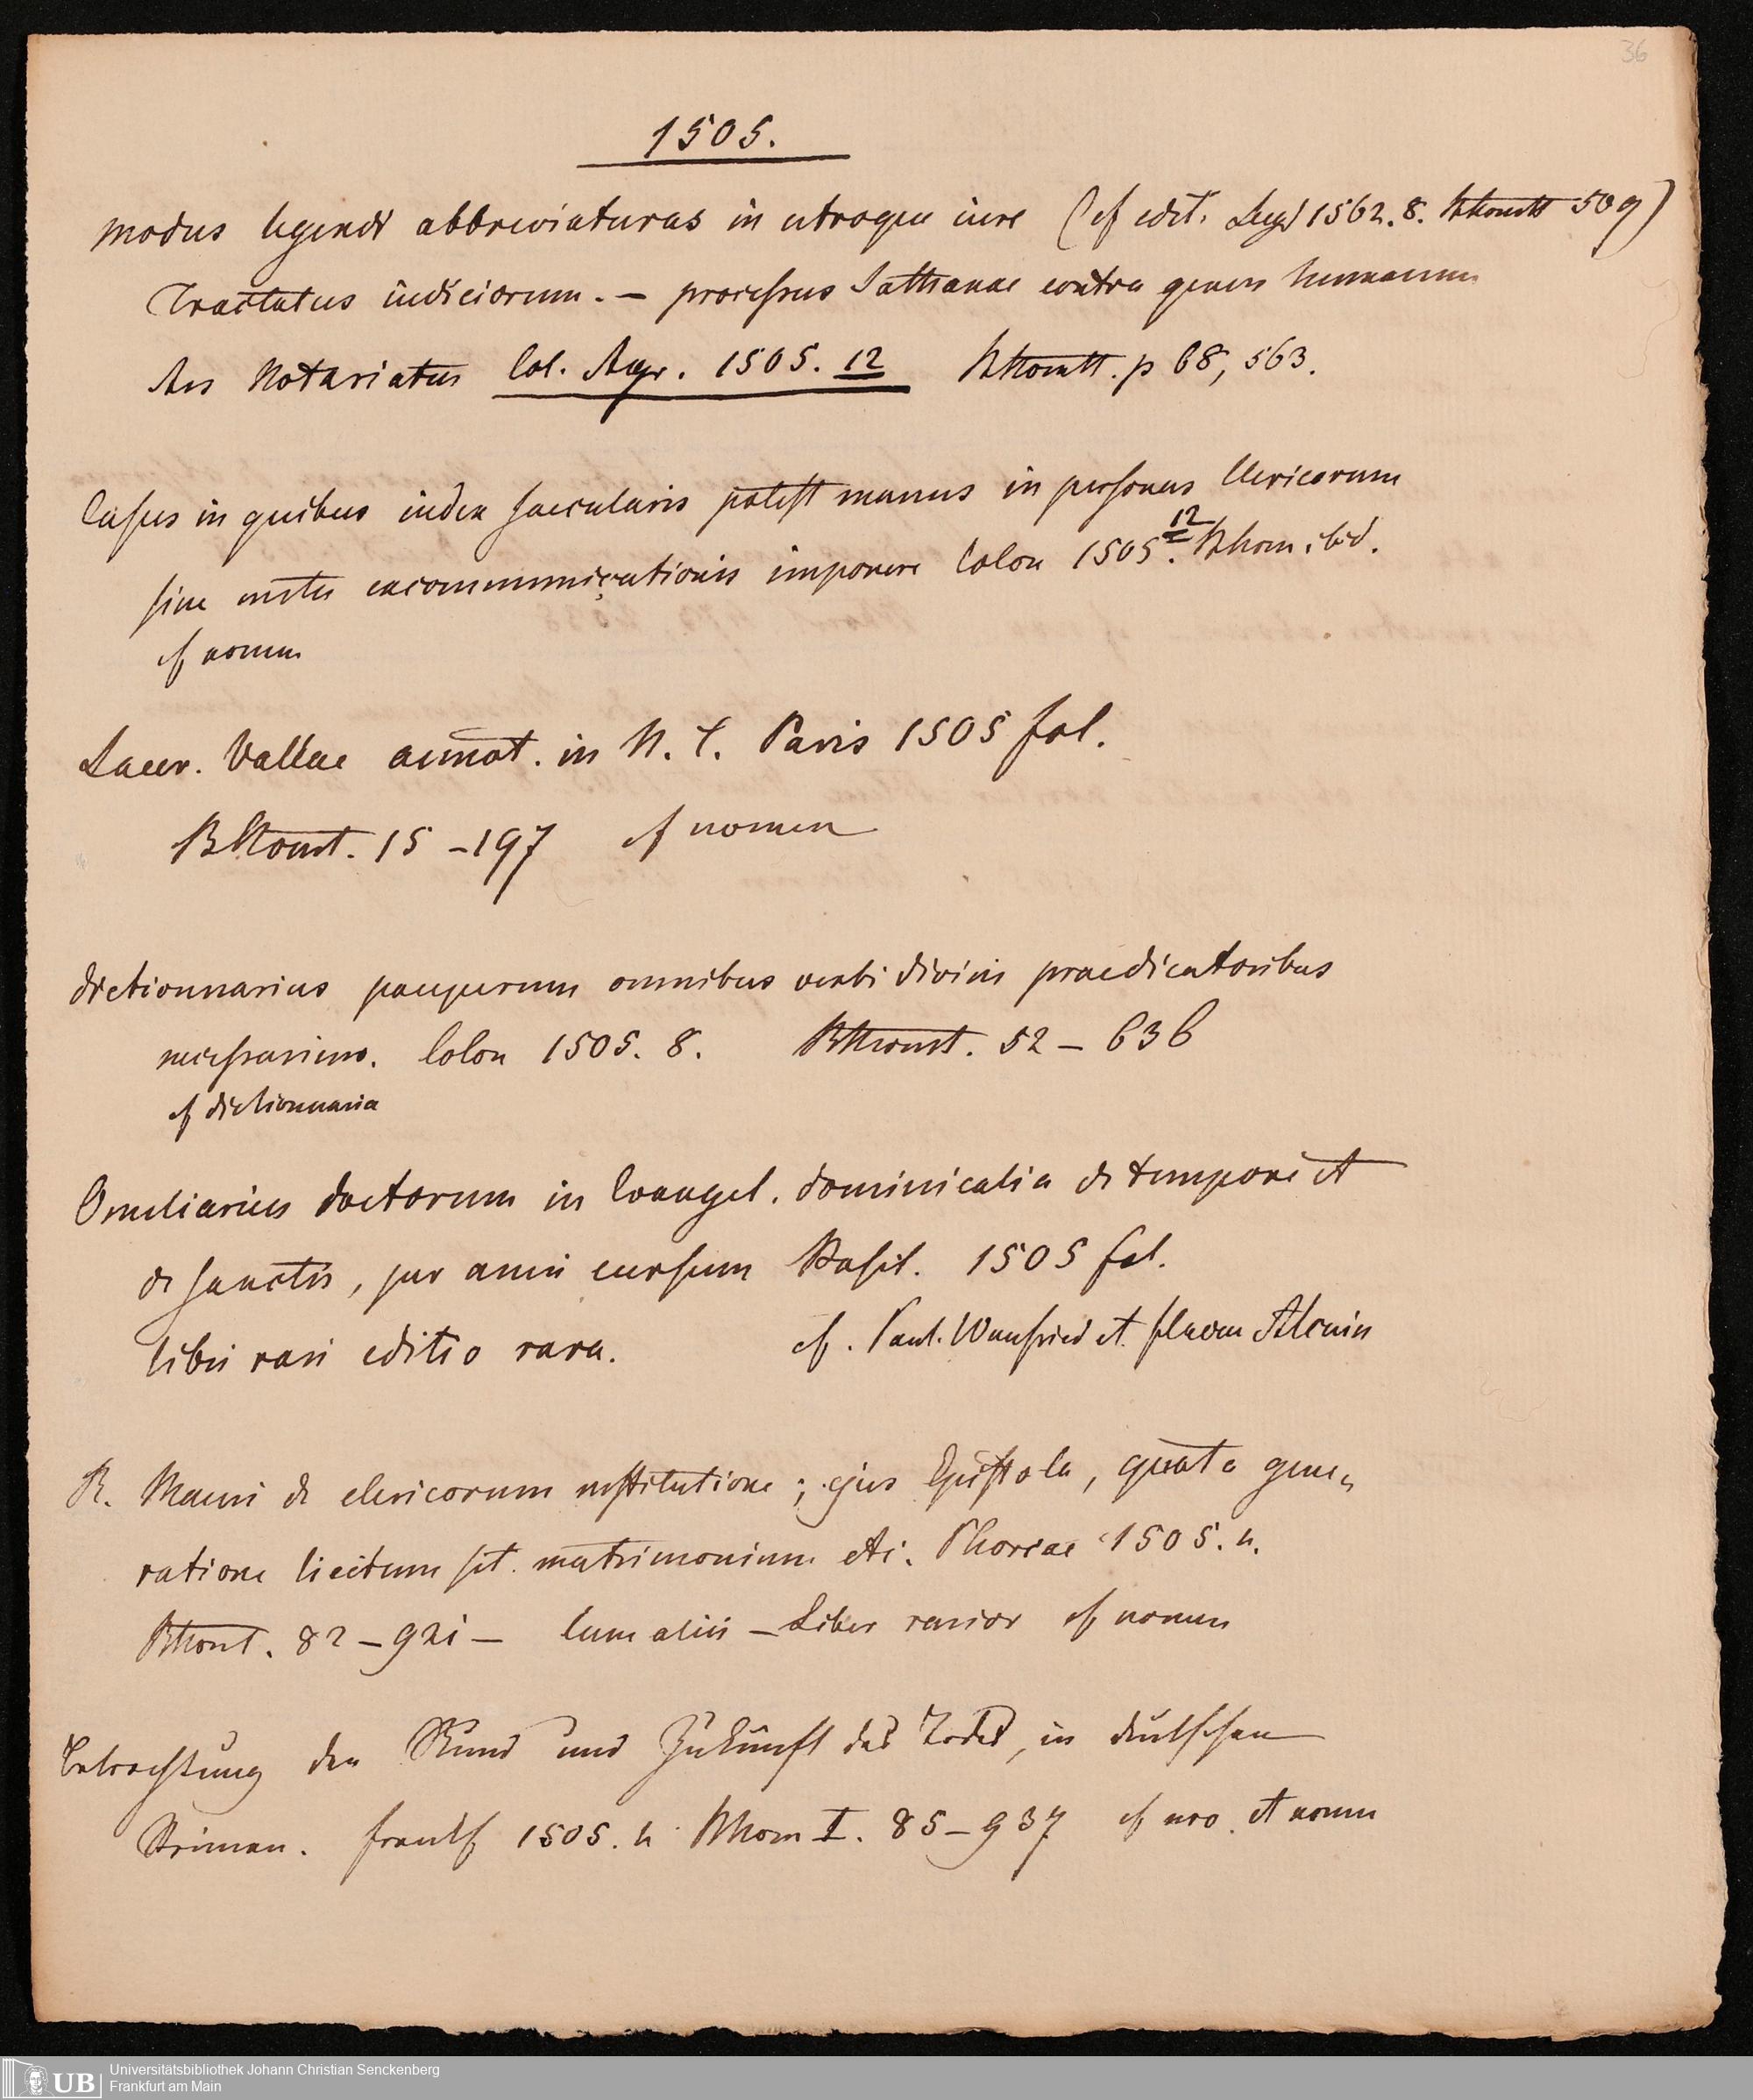 36
1505.
modus legendi abbreviaturas in utroque iure (cf edit. Lugd 1562. 8. 509)
Tractatus iudiciorum. – processus Sathanae contra genus humanum
Ars Notariatus Col. Agr. 1505. 12 p 68, 563.
Casus in quibus iudex saecularis potest manus in personas Clericorum
sine metu excommunicationis imponere Colon 1505. 12 ibid.
cf nomen
Laur. Vallae annot. in N. T. Paris 1505 fol.
15 – 197 cf nomen
dictionnarius pauperum omnibus verbi divini praedicatoribus
necessarius. Colon 1505. 8. 52 – 636
cf dictionnaria
Omeliarius doctorum in Evangel. dominicalia de tempore et
de sanctis, per anni cursum Basil. 1505 fol.
libri rari editio rara. cf. Paul. Wanfried et Alcuin
R. Mauri de clericorum institutione; ejus Epistola, quota gene„
ratione licitum sit matrimonium etc. Phorcae 1505. 4.
82 – 921 – Cum aliis – Liber rarior cf nomen
Betrachtung der Stund und Zukunft des Todes, in deutschen
Reimen. Frankf 1505. 4 I. 85 – 937 cf et nomen
UB
Universitätsbibliothek Johann Christian Senckenberg
Frankfurt am Main